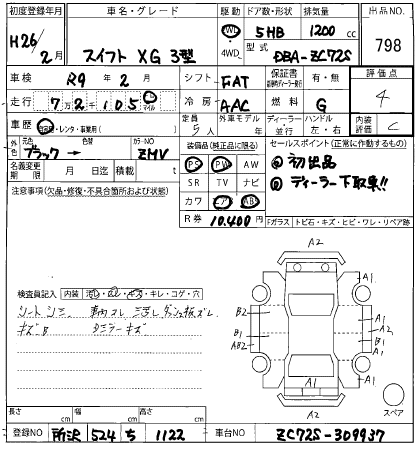 初度登録年月 車名・グレード 駆動 ドア数・形状 排気量 出品NO.
H26/2月 スイフト XG 3型 2WD 4WD 5HB 1200 cc 798
型式 DBA-ZC72S
車検 R9年2月 シフト FAT 保証書 有・無 評価点 4
走行 72,105 km マイル 冷房 AAC 燃料 G 内装評価 C
車歴 自家用・レンタ・事業用( ) 定員 5人 外車モデル年 年 ディーラー 並行 ハンドル 左・右
外色 元色 ブラック → 色替 カラーNO ZMV 装備品(純正品に限る) セールスポイント(正常に作動するもの)
名義変更期限 月 日迄 積載 t PS PW AW ◎初出品
注意事項(欠品・修復・不具合箇所および状態) SR TV ナビ ◎ディーラー下取車!!
カワ エアB ABS
R券 10,400円 Fガラス トビ石・キズ・ヒビ・ワレ・リペア跡
A2
検査員記入 内装 汚レ・コレ・キズ・キレ・コゲ・穴
A1
シートシミ B2 A1
キズ有 B1 C B1
AB2 A1
A1 A1
A2
スペア
長さ cm 幅 cm 高さ cm
登録NO 所沢 524 ち 1122 車台NO ZC72S-309937